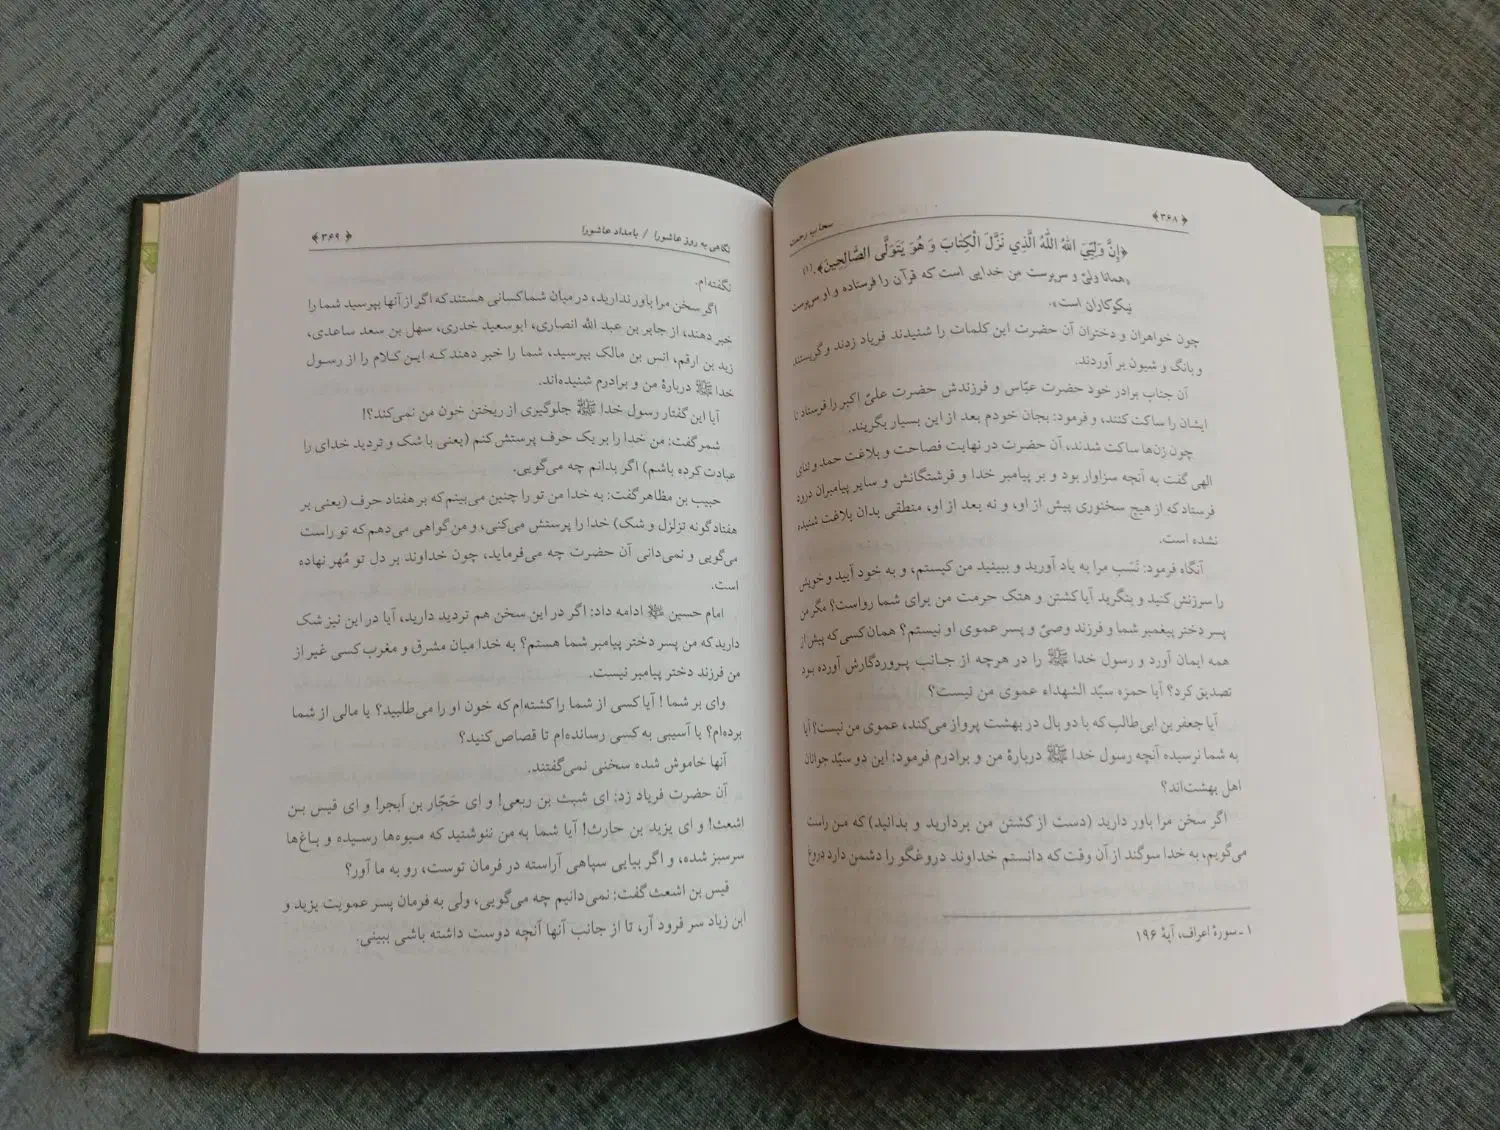 ﴿۳۶۸﴾ سحاب رحمت
﴿إِنَّ وَلِيِّيَ اللّٰهُ الَّذِي نَزَّلَ الْكِتَابَ وَ هُوَ يَتَوَلَّى الصَّالِحِينَ﴾.(۱)
«همانا ولیّ و سرپرست من خدایی است که قرآن را فرستاده و او سرپرست
نیکوکاران است».
چون خواهران و دختران آن حضرت این کلمات را شنیدند فریاد زدند و گریستند
و بانگ و شیون بر آوردند.
آن جناب برادر خود حضرت عبّاس و فرزندش حضرت علیّ اکبر را فرستاد تا
ایشان را ساکت کنند، و فرمود: بجان خودم بعد از این بسیار بگریند.
چون زن‌ها ساکت شدند، آن حضرت در نهایت فصاحت و بلاغت حمد و ثنای
الهی گفت به آنچه سزاوار بود و بر پیامبر خدا و فرشتگانش و سایر پیامبران درود
فرستاد که از هیچ سخنوری پیش از او، و نه بعد از او، منطقی بدان بلاغت شنیده
نشده است.
آنگاه فرمود: نَسَب مرا به یاد آورید و ببینید من کیستم، و به خود آیید و خویش
را سرزنش کنید و بنگرید آیا کشتن و هتک حرمت من برای شما رواست؟ مگر من
پسر دختر پیغمبر شما و فرزند وصیّ و پسر عموی او نیستم؟ همان کسی که پیش از
همه ایمان آورد و رسول خدا ﷺ را در هرچه از جانب پروردگارش آورده بود
تصدیق کرد؟ آیا حمزه سیّد الشهداء عموی من نیست؟
آیا جعفر بن ابی‌طالب که با دو بال در بهشت پرواز می‌کند، عموی من نیست؟ آیا
به شما نرسیده آنچه رسول خدا ﷺ دربارهٔ من و برادرم فرمود: این دو سیّد جوانان
اهل بهشت‌اند؟
اگر سخن مرا باور دارید (دست از کشتن من بردارید و بدانید) که من راست
می‌گویم، به خدا سوگند از آن وقت که دانستم خداوند دروغگو را دشمن دارد دروغ
۱ - سورهٔ اعراف، آیهٔ ۱۹۶
نگاهی به روز عاشورا / بامداد عاشورا ﴿۳۶۹﴾
نگفته‌ام.
اگر سخن مرا باور ندارید، در میان شما کسانی هستند که اگر از آنها بپرسید شما را
خبر دهند، از جابر بن عبد الله انصاری، ابو سعید خدری، سهل بن سعد ساعدی،
زید بن ارقم، انس بن مالک بپرسید، شما را خبر دهند که این کلام را از رسول
خدا ﷺ دربارهٔ من و برادرم شنیده‌اند.
آیا این گفتار رسول خدا ﷺ جلوگیری از ریختن خون من نمی‌کند؟!
شمر گفت: من خدا را بر یک حرف پرستش کنم (یعنی با شک و تردید خدای را
عبادت کرده باشم) اگر بدانم چه می‌گویی.
حبیب بن مظاهر گفت: به خدا من تو را چنین می‌بینم که بر هفتاد حرف (یعنی بر
هفتاد گونه تزلزل و شک) خدا را پرستش می‌کنی، و من گواهی می‌دهم که تو راست
می‌گویی و نمی‌دانی آن حضرت چه می‌فرماید، چون خداوند بر دل تو مُهر نهاده
است.
امام حسین ﵇ ادامه داد: اگر در این سخن هم تردید دارید، آیا در این نیز شک
دارید که من پسر دختر پیامبر شما هستم؟ به خدا میان مشرق و مغرب کسی غیر از
من فرزند دختر پیامبر نیست.
وای بر شما! آیا کسی از شما را کشته‌ام که خون او را می‌طلبید؟ یا مالی از شما
برده‌ام؟ یا آسیبی به کسی رسانده‌ام تا قصاص کنید؟
آنها خاموش شده سخنی نمی‌گفتند.
آن حضرت فریاد زد: ای شبث بن ربعی! و ای حَجّار بن اَبجر! و ای قیس بن
اشعث! و ای یزید بن حارث! آیا شما به من ننوشتید که میوه‌ها رسیده و باغ‌ها
سرسبز شده، و اگر بیایی سپاهی آراسته در فرمان توست، رو به ما آور؟
قیس بن اشعث گفت: نمی دانیم چه می‌گویی، ولی به فرمان پسر عمویت یزید و
ابن زیاد سر فرود آر، تا از جانب آنها آنچه دوست داشته باشی ببینی.